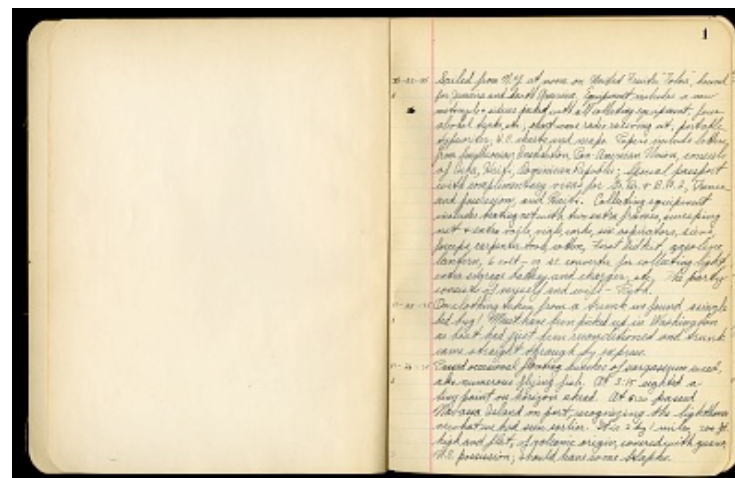 1
Sailed from N.Y. at noon on United Fruits "Toloa", bound
for Jamaica and South America. Equipment includes a new
motorcycle + sidecar packed with all collecting equipment, four
alcohol tanks, etc., short wave radio receiving set, portable
typewriter, U.S. charts and maps. Papers include letters
from Smithsonian Institution, Pan-American Union, consuls
of Cuba, Haiti, Dominican Republic; special passport
with complimentary visas for
and possession, and Haiti. Collecting equipment
includes beating net with two extra frames, sweeping
net + extra vials, six aspirators, sieve,
forceps, carpenter tools, First Aid kit, gasoline
lantern, 6 volt converter for collecting light
extra storage battery and charger, etc. The party
consists of myself and wife - Ruth.
On clothing taken from a trunk we found a single
bed bug! Must have been picked up in Washington
as boat had just been reconditioned and trunk
came straight through by express.
Passed occasional floating bunches of sargassum weed,
also numerous flying fish. At 3:15 sighted a
tiny point on horizon ahead. At 5:20 passed
Navassa Island on port, recognizing the lighthouse
as what we had seen earlier. It is 2 by 1 miles, 200 ft.
high and flat, of volcanic origin, covered with guano,
U.S. possession; should have some Staphs.